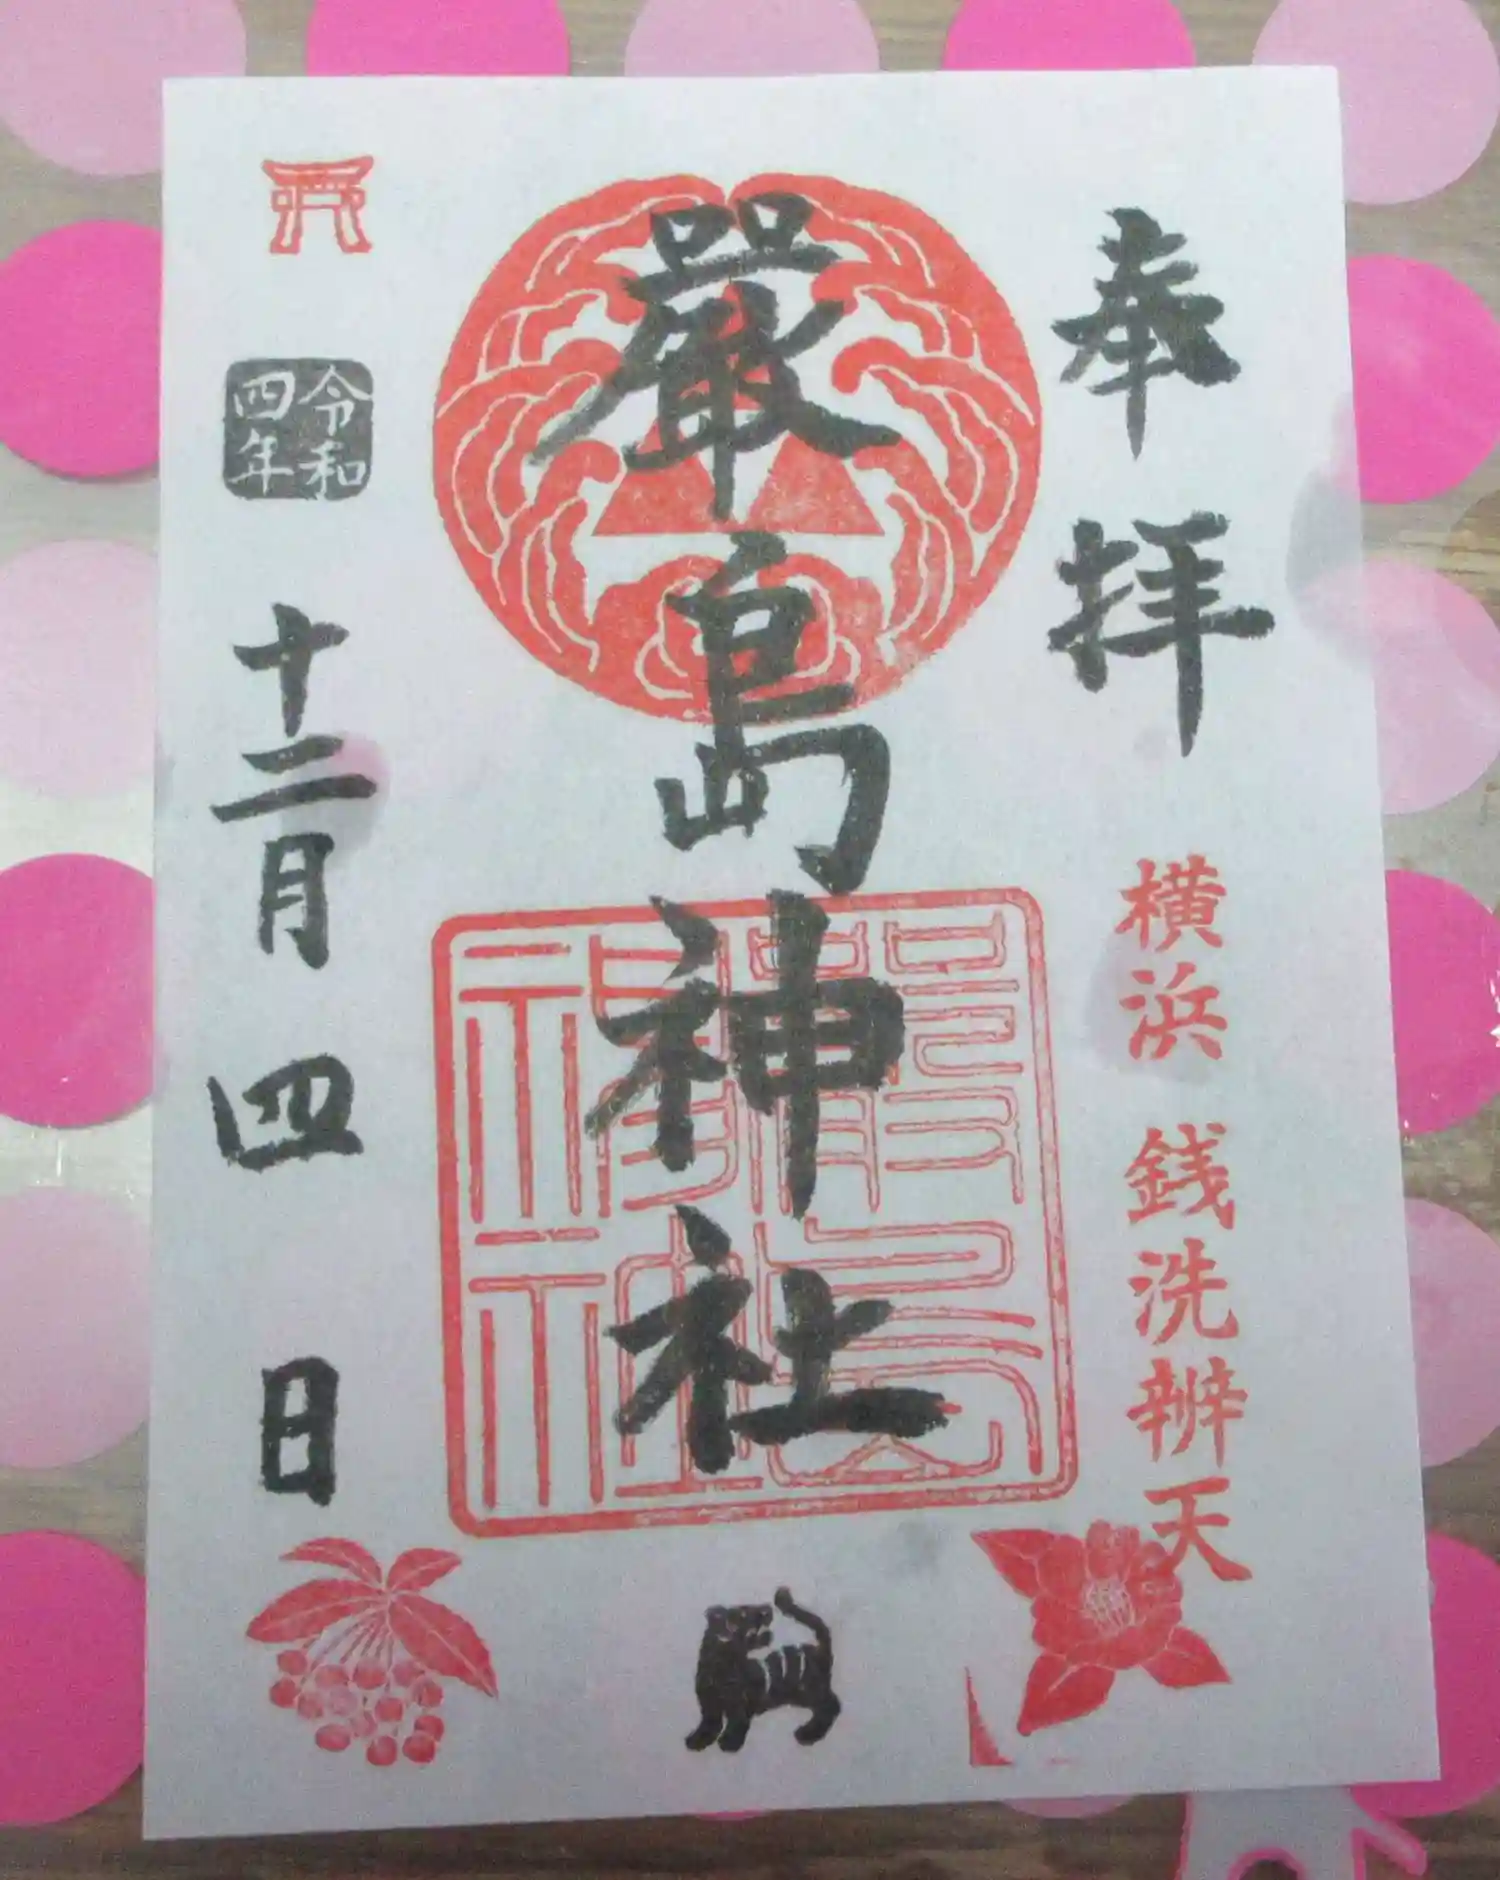 奉拝
横浜 銭洗辨天
嚴島神社
嚴島
神社
令和
四年
十二月四日